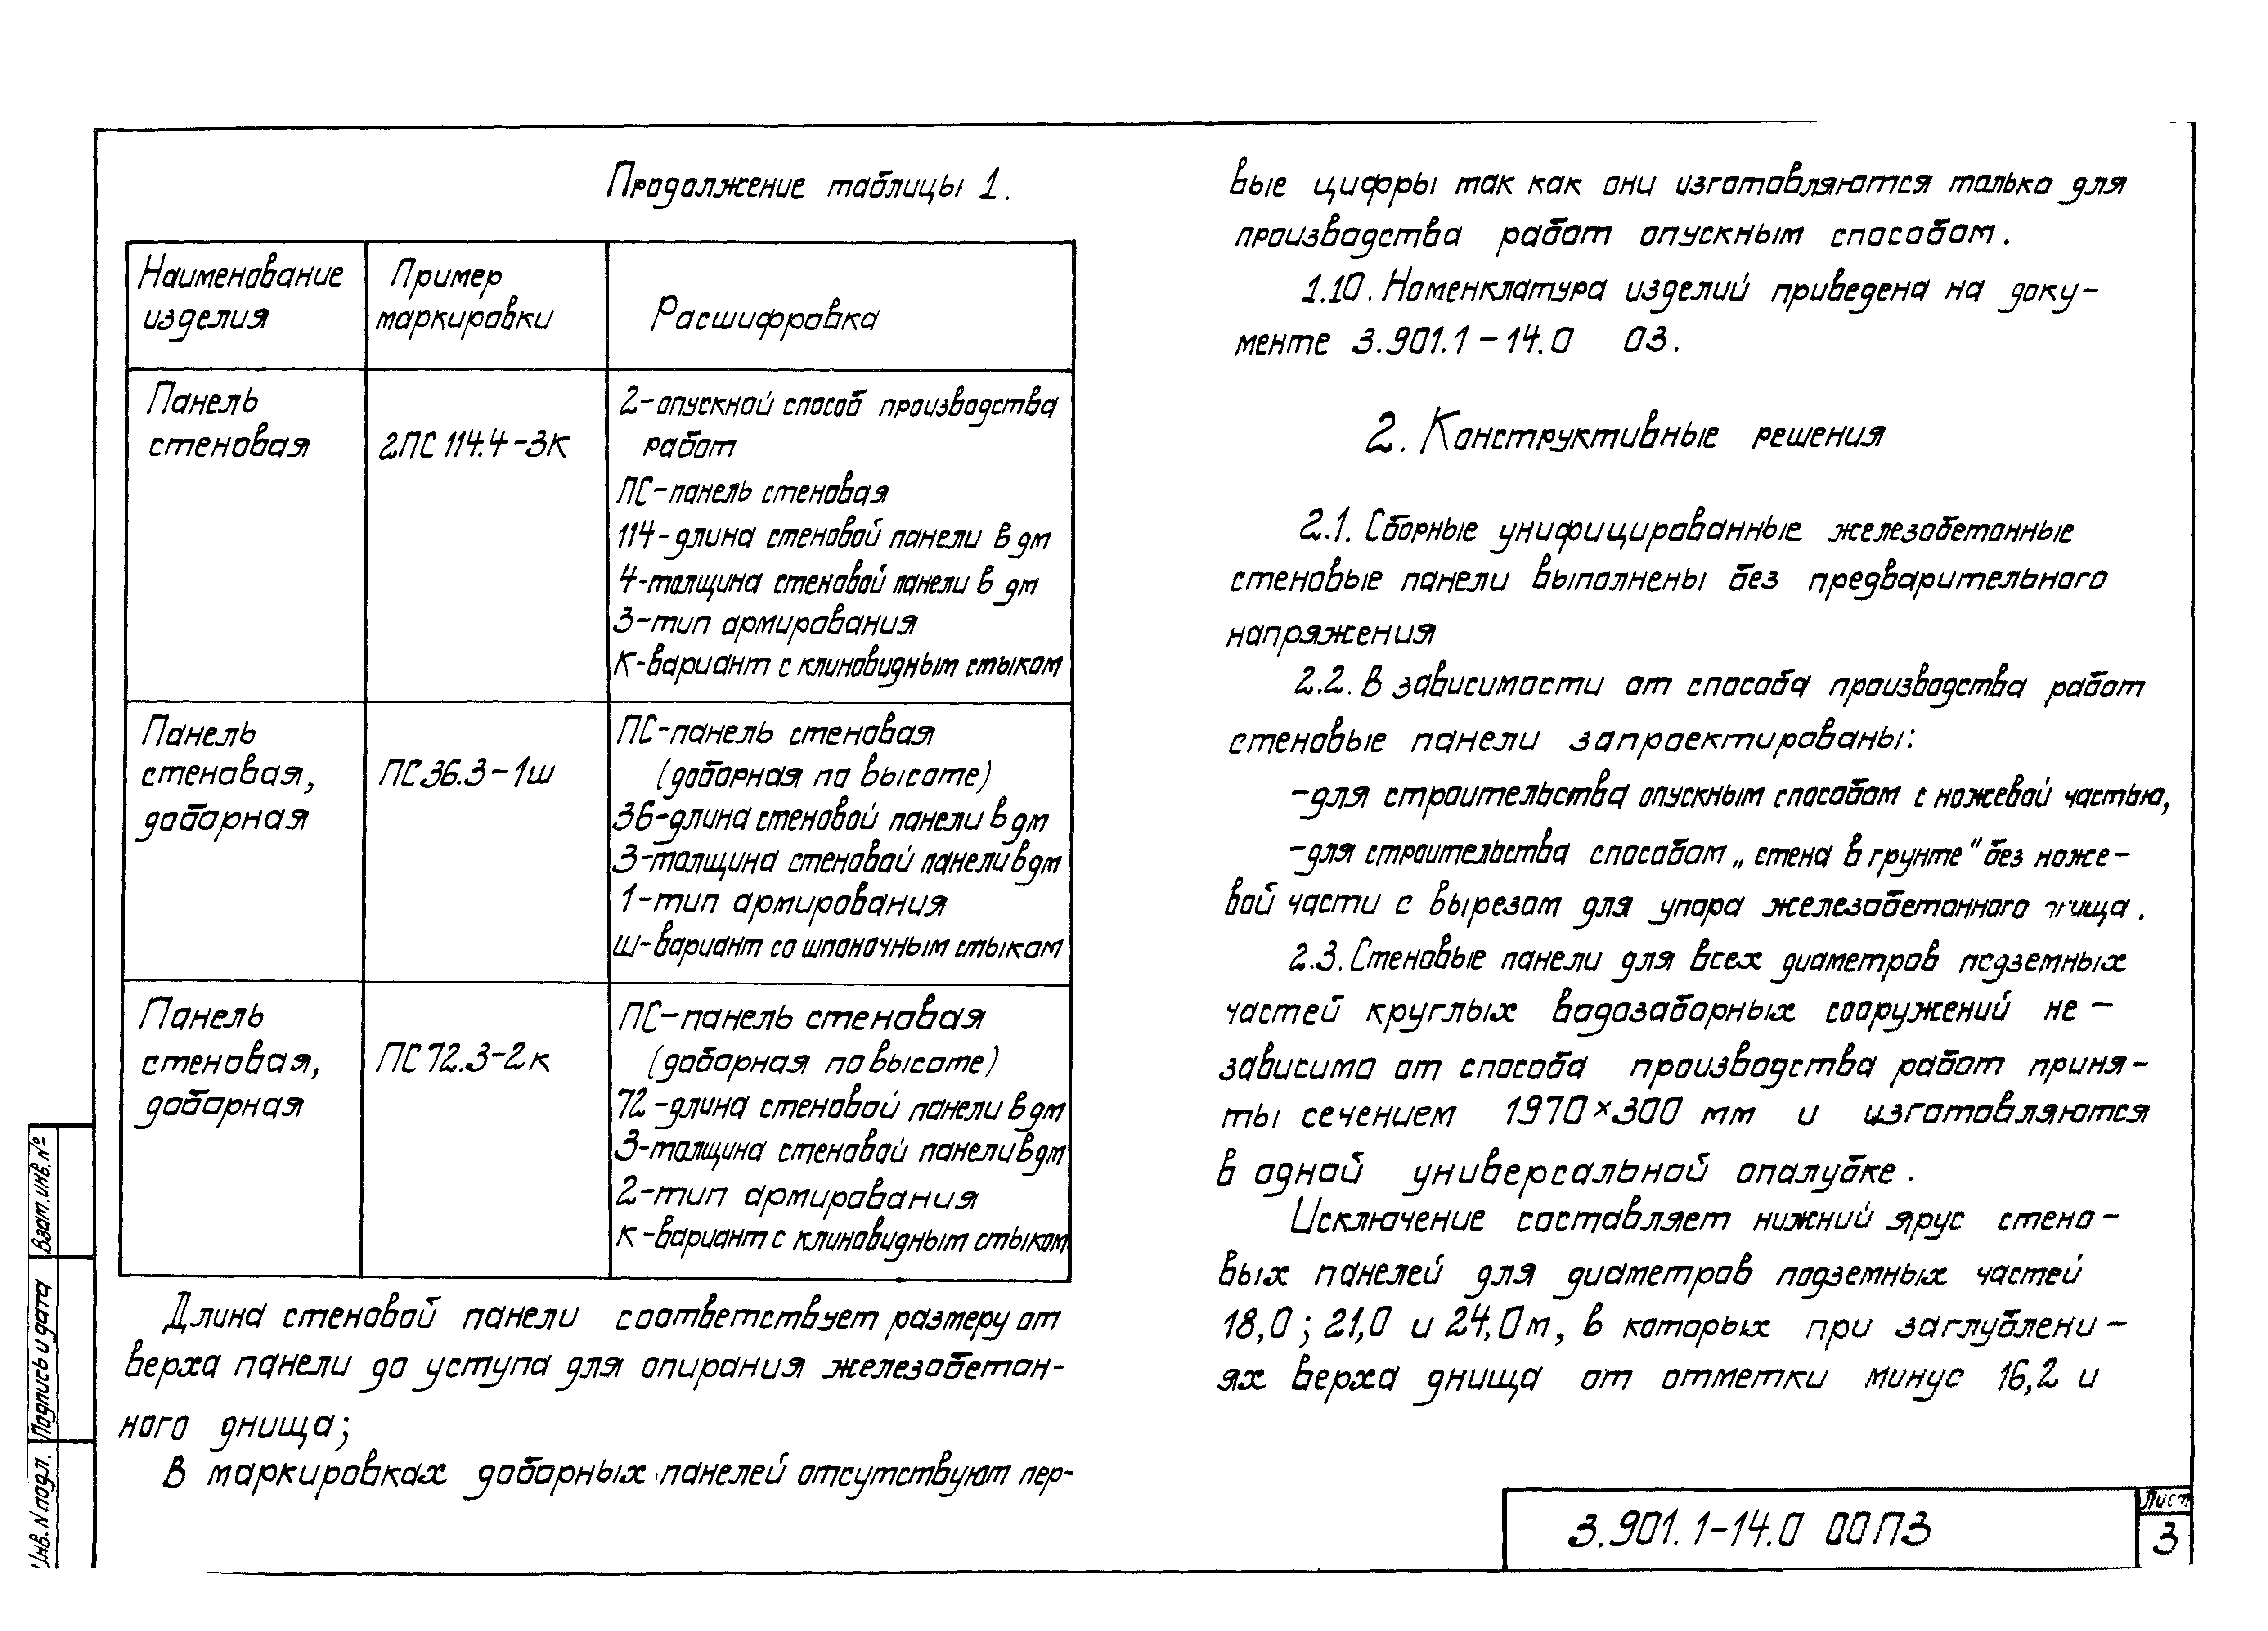 Продолжение таблицы 1.
Наименование
изделия
Пример
маркировки
Расшифровка
Панель
стеновая
2ПС 114.4-3К
2-опускной способ производства
работ
ПС-панель стеновая
114-длина стеновой панели в дм
4-толщина стеновой панели в дм
3-тип армирования
К-вариант с клиновидным стыком
Панель
стеновая,
доборная
ПС36.3-1ш
ПС-панель стеновая
(доборная по высоте)
36-длина стеновой панели в дм
3-толщина стеновой панели в дм
1-тип армирования
ш-вариант со шпоночным стыком
Панель
стеновая,
доборная
ПС72.3-2к
ПС-панель стеновая
(доборная по высоте)
72-длина стеновой панели в дм
3-толщина стеновой панели в дм
2-тип армирования
к-вариант с клиновидным стыком
Длина стеновой панели соответствует размеру от
верха панели до уступа для опирания железобетон-
ного днища;
В маркировках доборных панелей отсутствуют пер-
вые цифры так как они изготовляются только для
производства работ опускным способом.
1.10. Номенклатура изделий приведена на доку-
менте 3.901.1-14.0 03.
2. Конструктивные решения
2.1. Сборные унифицированные железобетонные
стеновые панели выполнены без предварительного
напряжения
2.2. В зависимости от способа производства работ
стеновые панели запроектированы:
-для строительства опускным способом с ножевой частью,
-для строительства способом „стена в грунте" без ноже-
вой части с вырезом для упора железобетонного днища.
2.3. Стеновые панели для всех диаметров подземных
частей круглых водозаборных сооружений не-
зависимо от способа производства работ приня-
ты сечением 1970×300 мм и изготовляются
в одной универсальной опалубке.
Исключение составляет нижний ярус стено-
вых панелей для диаметров подземных частей
18,0; 21,0 и 24,0м, в которых при заглублени-
ях верха днища от отметки минус 16,2 и
3.901.1-14.0 00ПЗ
Лист
3
Взам. инв. №
Подпись и дата
Инв. N подл.